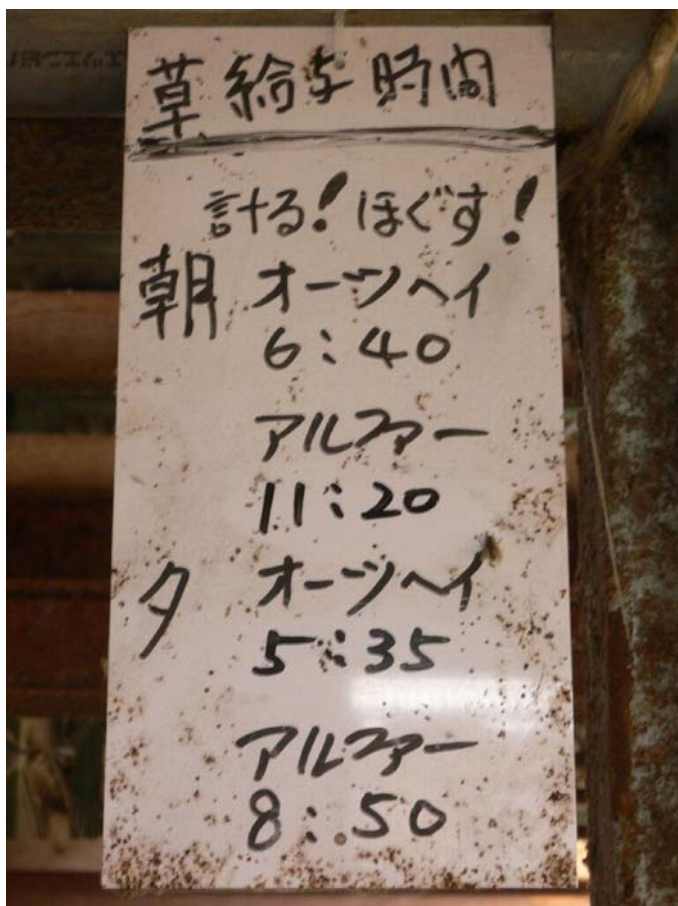 草給与時間
計る!ほぐす!
朝 オーツヘイ
6:40
アルファー
11:20
夕 オーツヘイ
5:35
アルファー
8:50